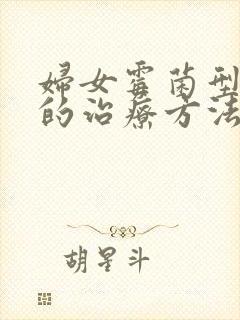 婦女霉菌型
的治療方法
胡星斗